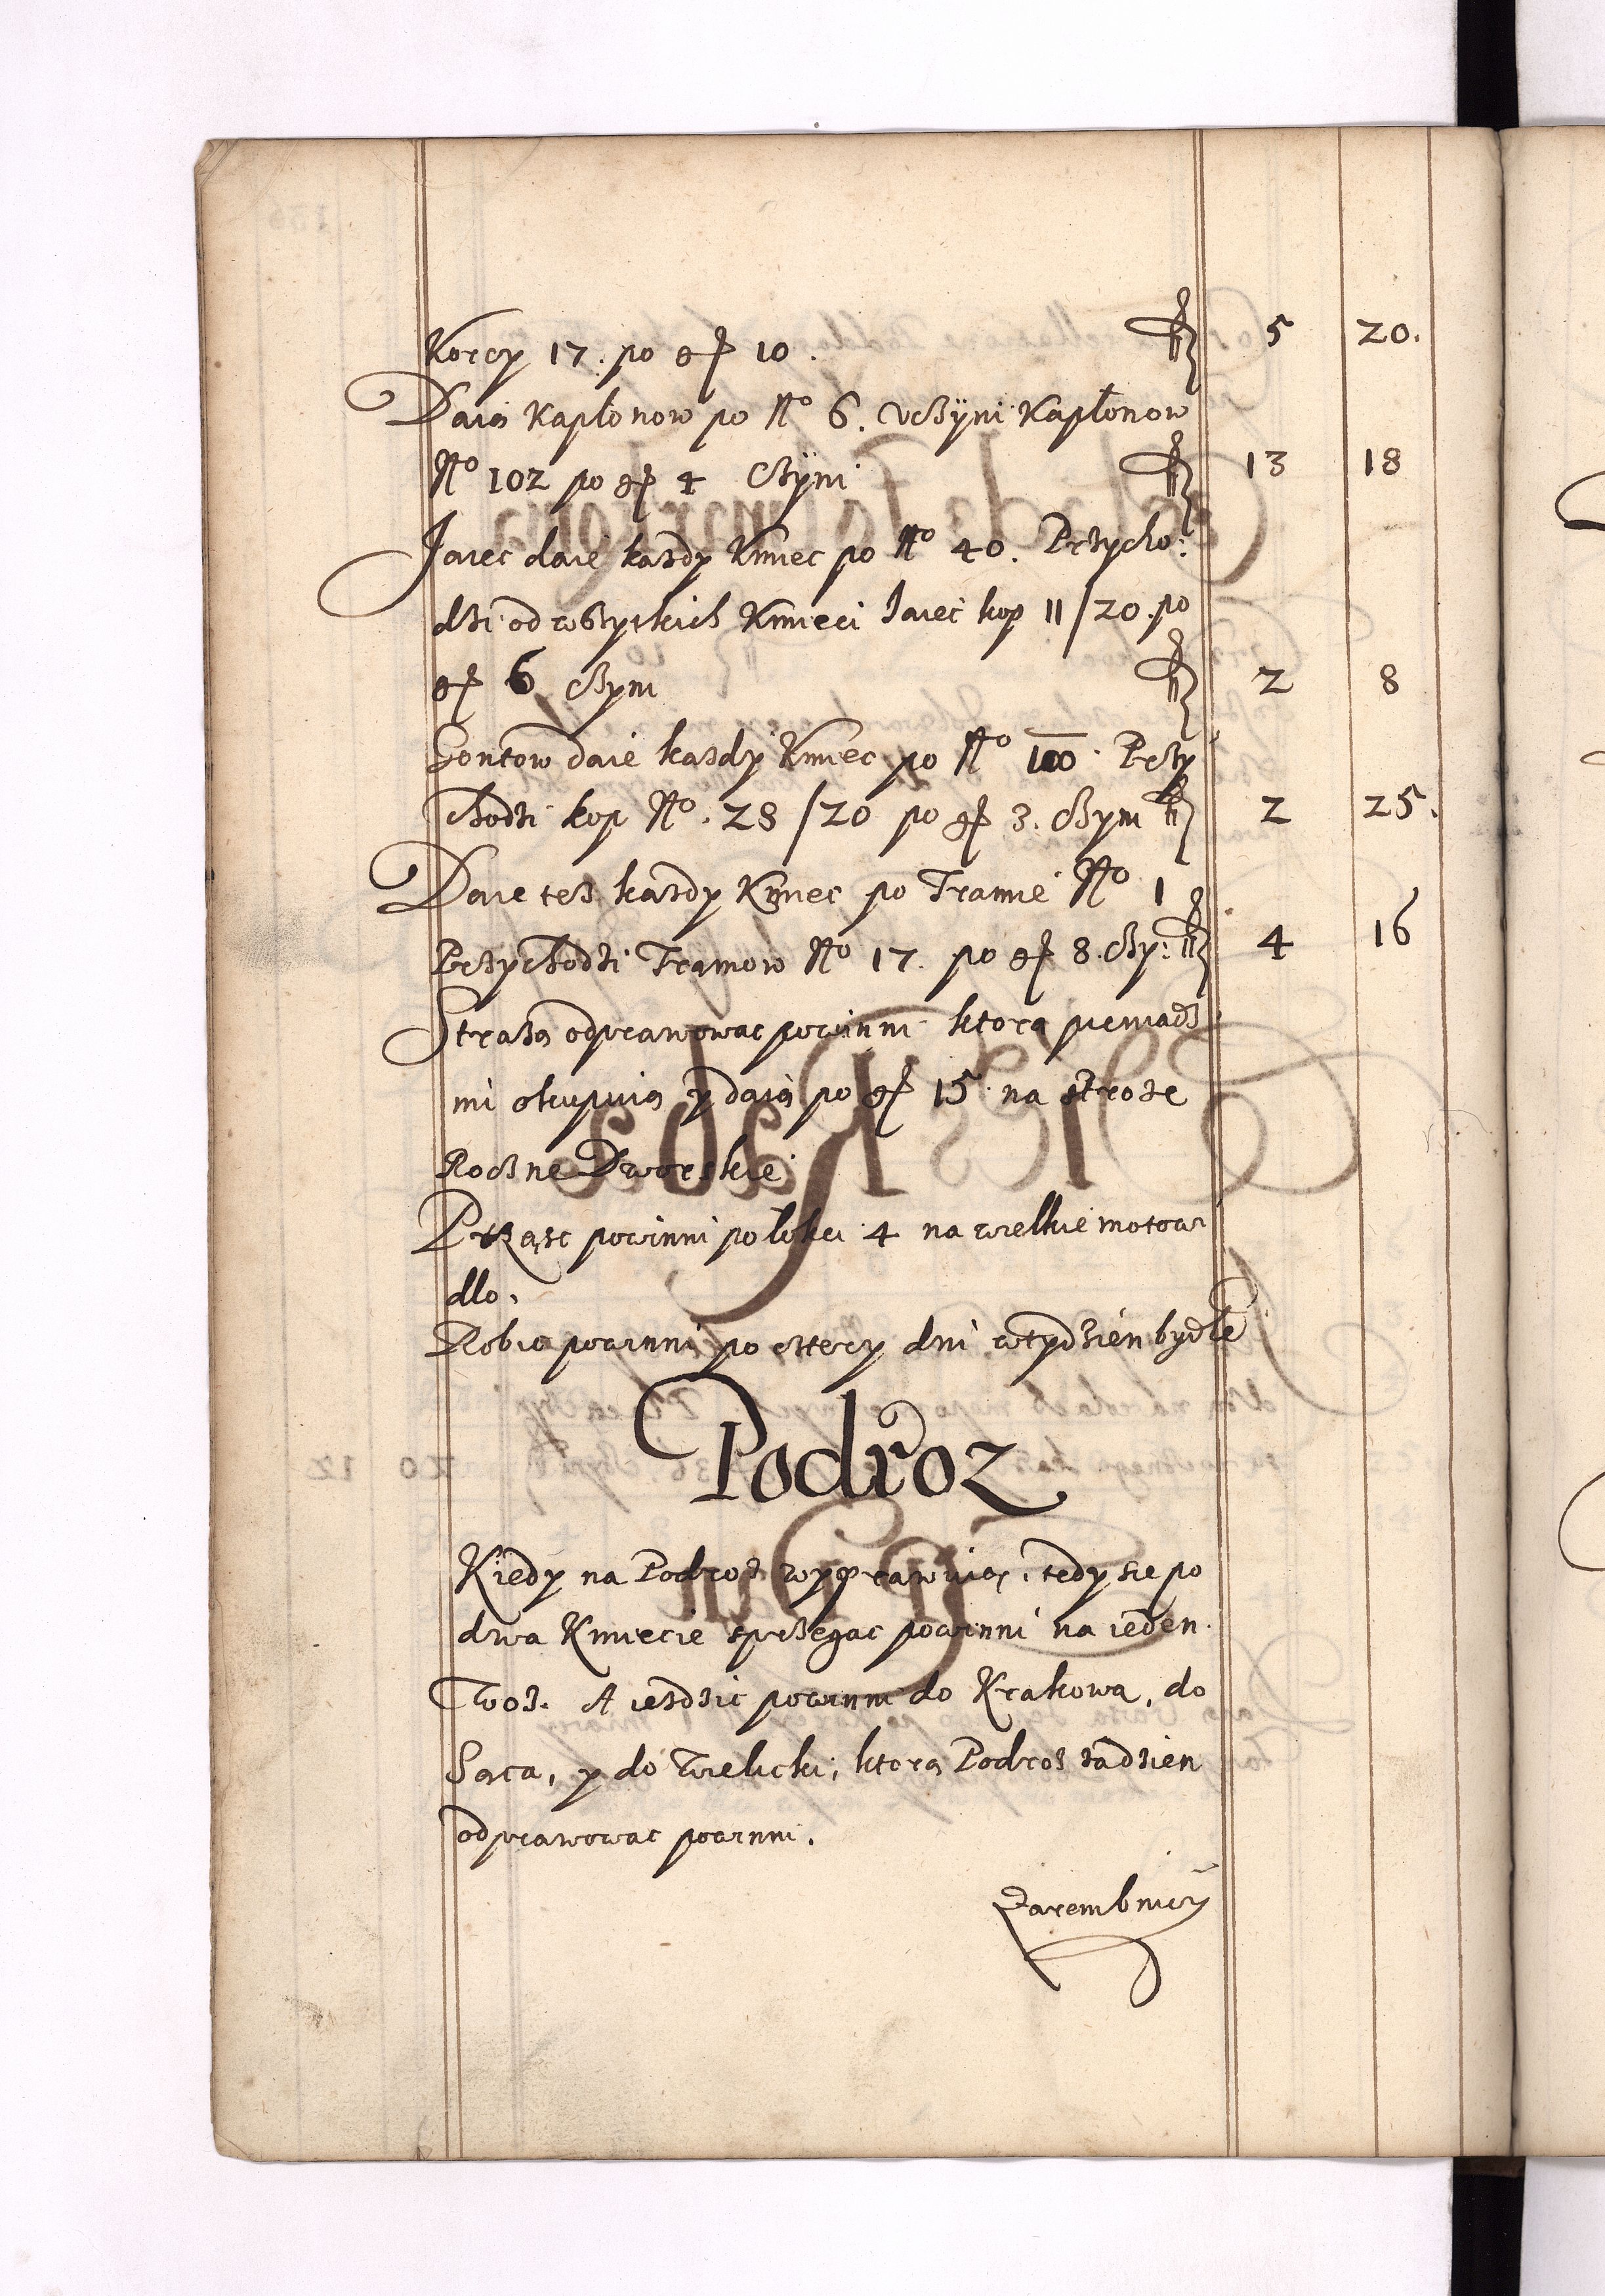 Korcy 17. po gr 10. fl 5 20.
Daią Kapłonow po No 6. vczÿni Kapłonow
No 102 po gr 4 Czÿni fl 13 18
Jaiec daie kazdy Kmiec po No 40. Przycho:
dzi od wszytkich Kmieci Jaiec kop 11/20. po
gr 6 czyni fl 2 8
Gontow daie kazdy Kmiec po No 100. Przy
chodzi kop No. 28/20 po gr 3. Czyni fl 2 25.
Daie tesz kazdy Kmiec po Tramie No 1
Przychodzi Tramow No 17. po gr 8. Czy: fl 4 16
Strażą odprawowac powinni ktorą pieniadz
mi okupuią y daią po gr 15 na stroze
Roczne Dworskie
Prząsc powinni po łokci 4 na wielkie motowi
dlo.
Robic powinni po cztery dni w tydzien bydłē
Podroz
Kiedy na Podroz wyprawuią, tedy sie po
dwa Kmiecie sprzegac powinni na ieden
Woz. A iezdzic powinni do Krakowa, do
Sąca, y do Wielicki, ktorą Podroz zadzien
odprawowac powinni.
Zarembnicy